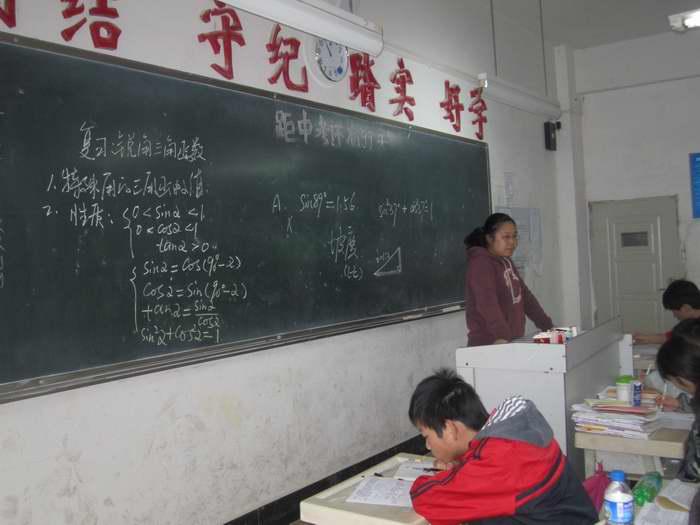 结 守纪 踏实 好学
距中考还有97天
复习:锐角三角函数
1.特殊角的三角函数值.
2.性质:
0<sinα<1
0<cosα<1
tanα>0
sinα=cos(90°-α)
cosα=sin(90°-α)
tanα=sinα/cosα
sin²α+cos²α=1
A. sin89°=1.56
×
坡度